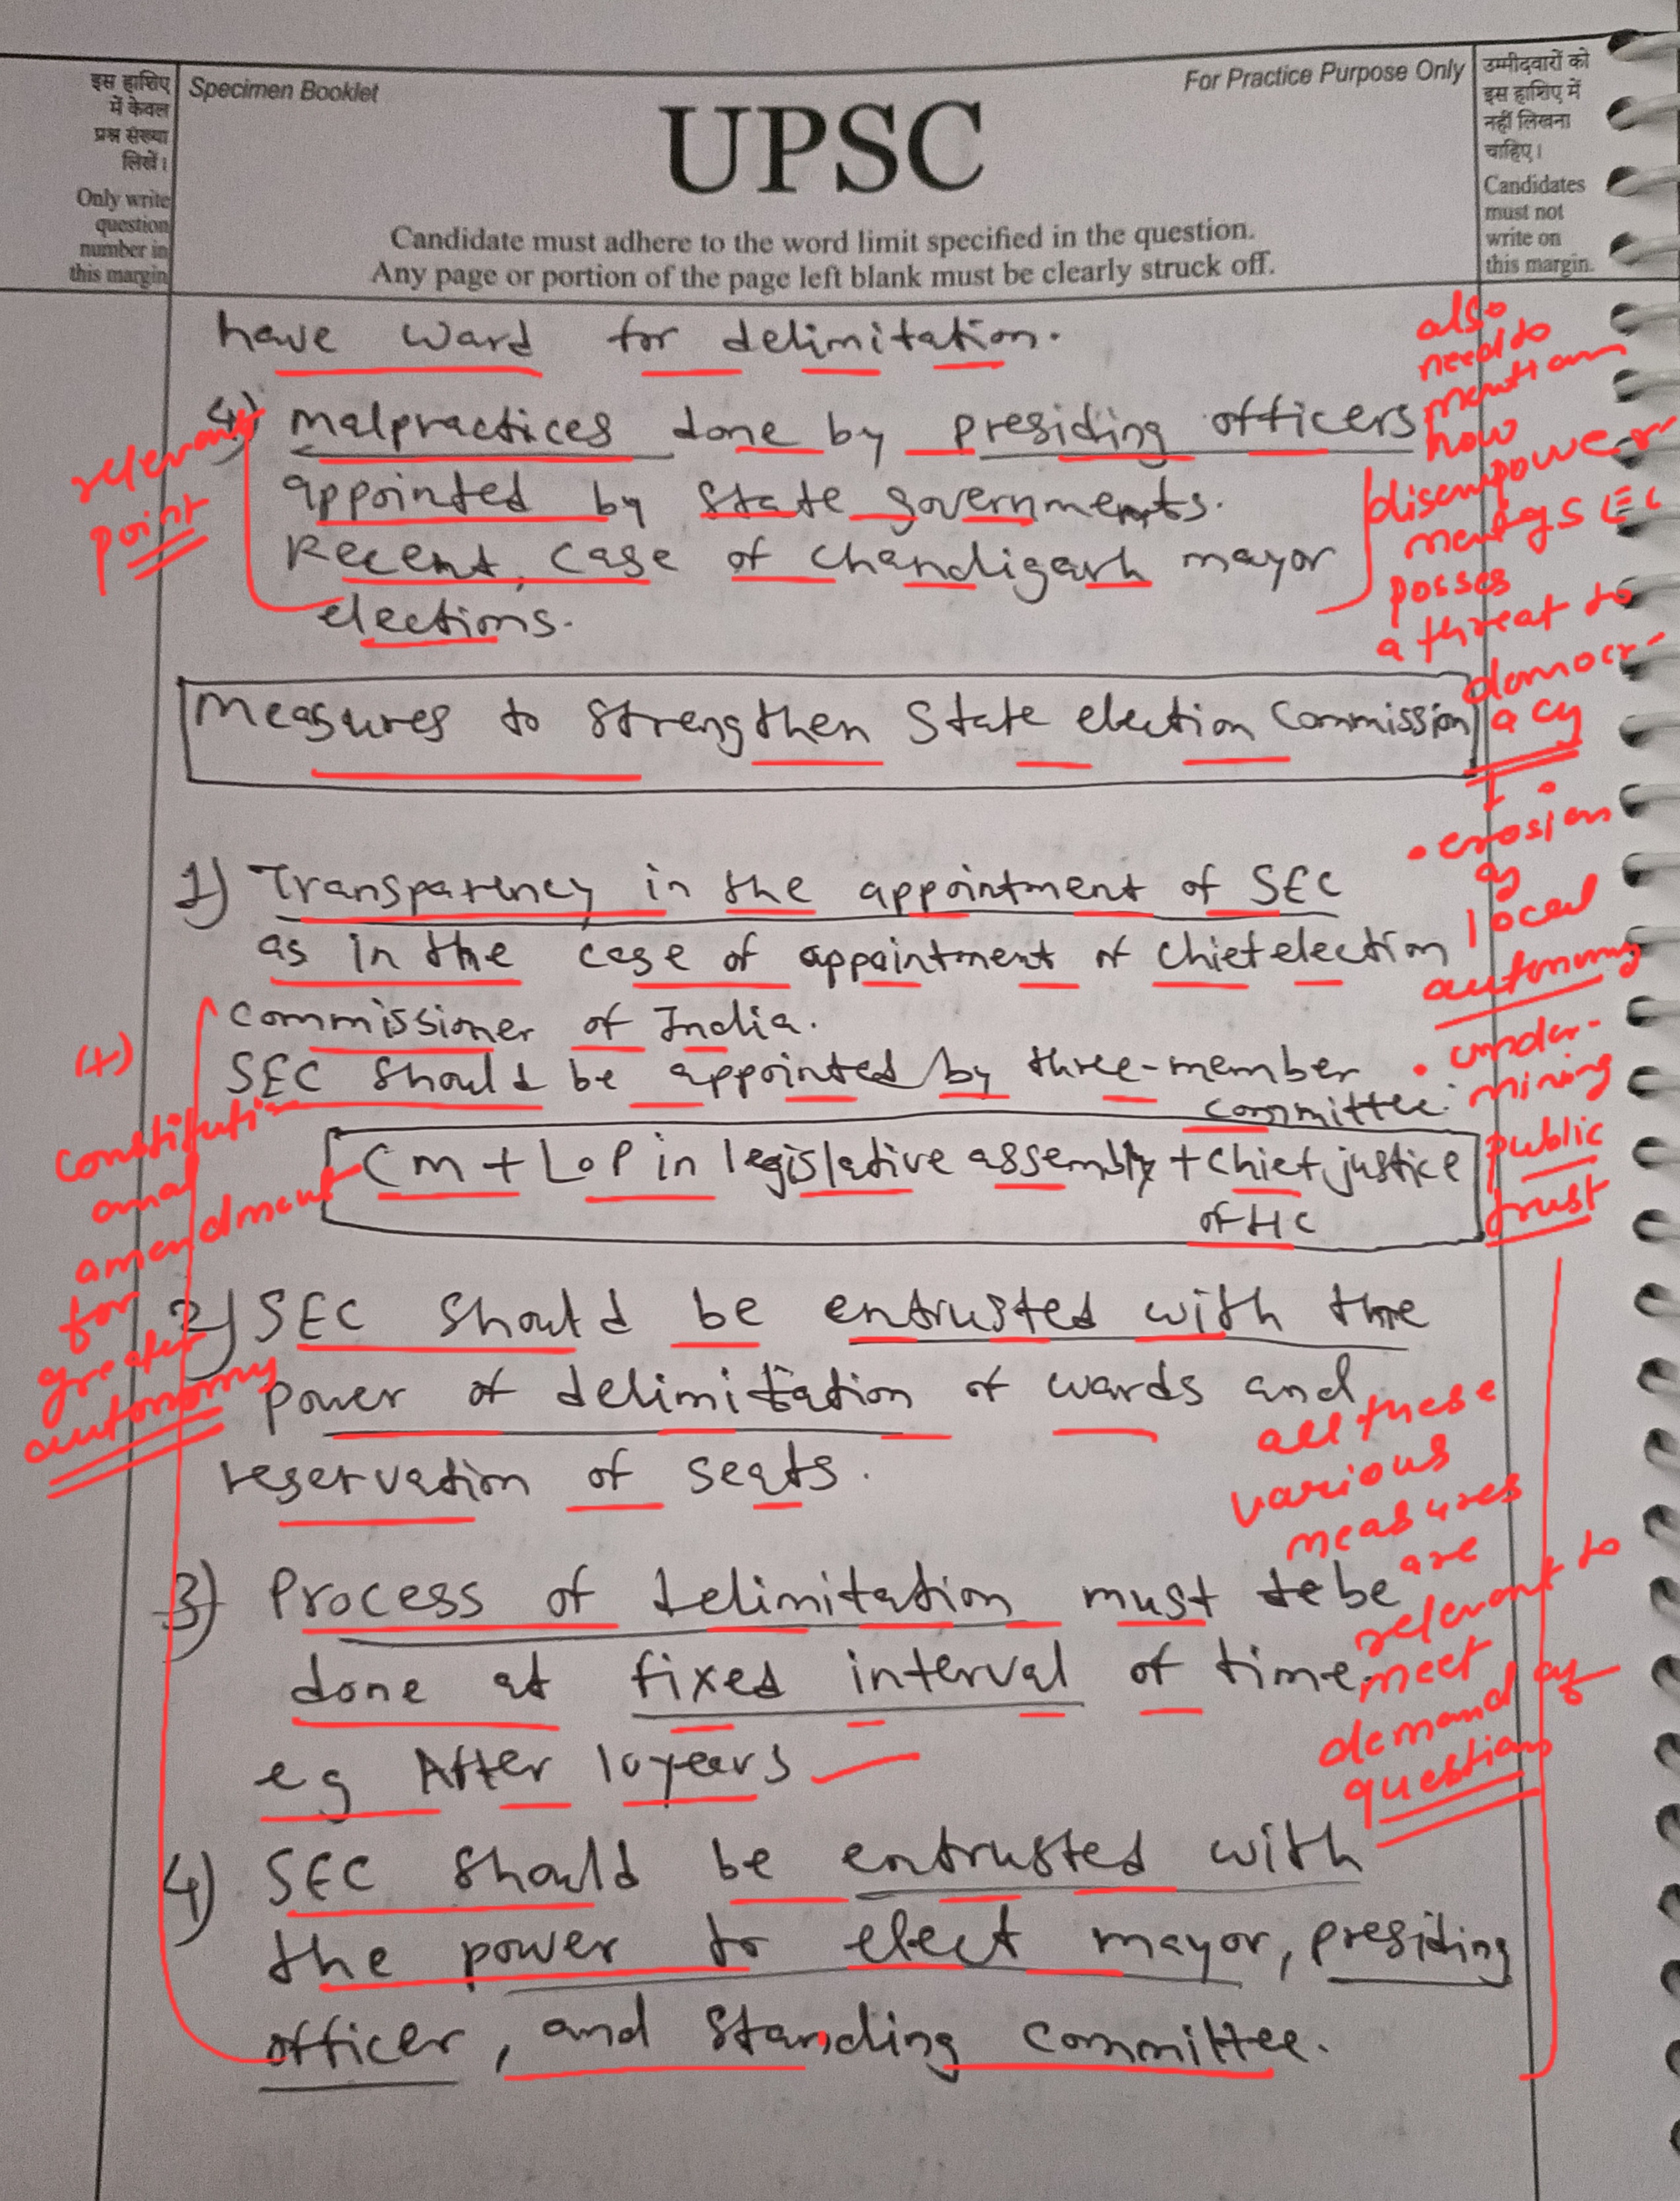 इस हाशिए
में केवल
प्रश्न संख्या
लिखें।
Only write
question
number in
this margin
Specimen Booklet
For Practice Purpose Only
UPSC
Candidate must adhere to the word limit specified in the question.
Any page or portion of the page left blank must be clearly struck off.
उम्मीदवारों को
इस हाशिए में
नहीं लिखना
चाहिए।
Candidates
must not
write on
this margin.
have ward for delimitation.
4) malpractices done by presiding officers
appointed by state governments.
Recent case of Chandigarh mayor
elections.
relevant
point
also
need to
mention
how
disempower
menting SEC
posses
a threat to
democr-
acy
• erosion
of
local
autonomy
• under-
mining
public
trust
Measures to strengthen State election Commission
1) Transparency in the appointment of SEC
as in the case of appointment of chief election
commissioner of India.
SEC should be appointed by three-member
committee.
Cm + LoP in legislative assembly + chief justice
of HC
(+)
constituti-
onal
amendment
for
greater
autonomy
2) SEC should be entrusted with the
power of delimitation of wards and
reservation of seats.
3) Process of delimitation must be
done at fixed interval of time.
eg After 10 years
all these
various
measures
are
relevant to
meet
demand of
question
4) SEC should be entrusted with
the power to elect mayor, presiding
officer, and standing committee.